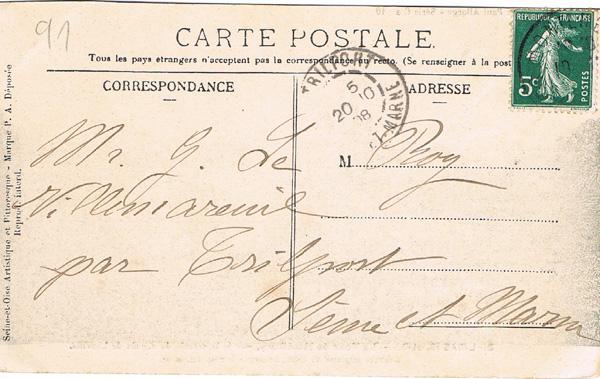 91
CARTE POSTALE.
Tous les pays étrangers n'acceptent pas la correspondance au recto. (Se renseigner à la poste
CORRESPONDANCE
ADRESSE
RÉPUBLIQUE FRANÇAISE
5c
POSTES
TRILPORT
5
20 10
08
ET-MARNE
M
Mr. G. Le Roy
Villemareuil
par Trilport
Seine et Marne
Seine-et-Oise Artistique et Pittoresque - Marque P. A. Déposée
Reprod. interd.